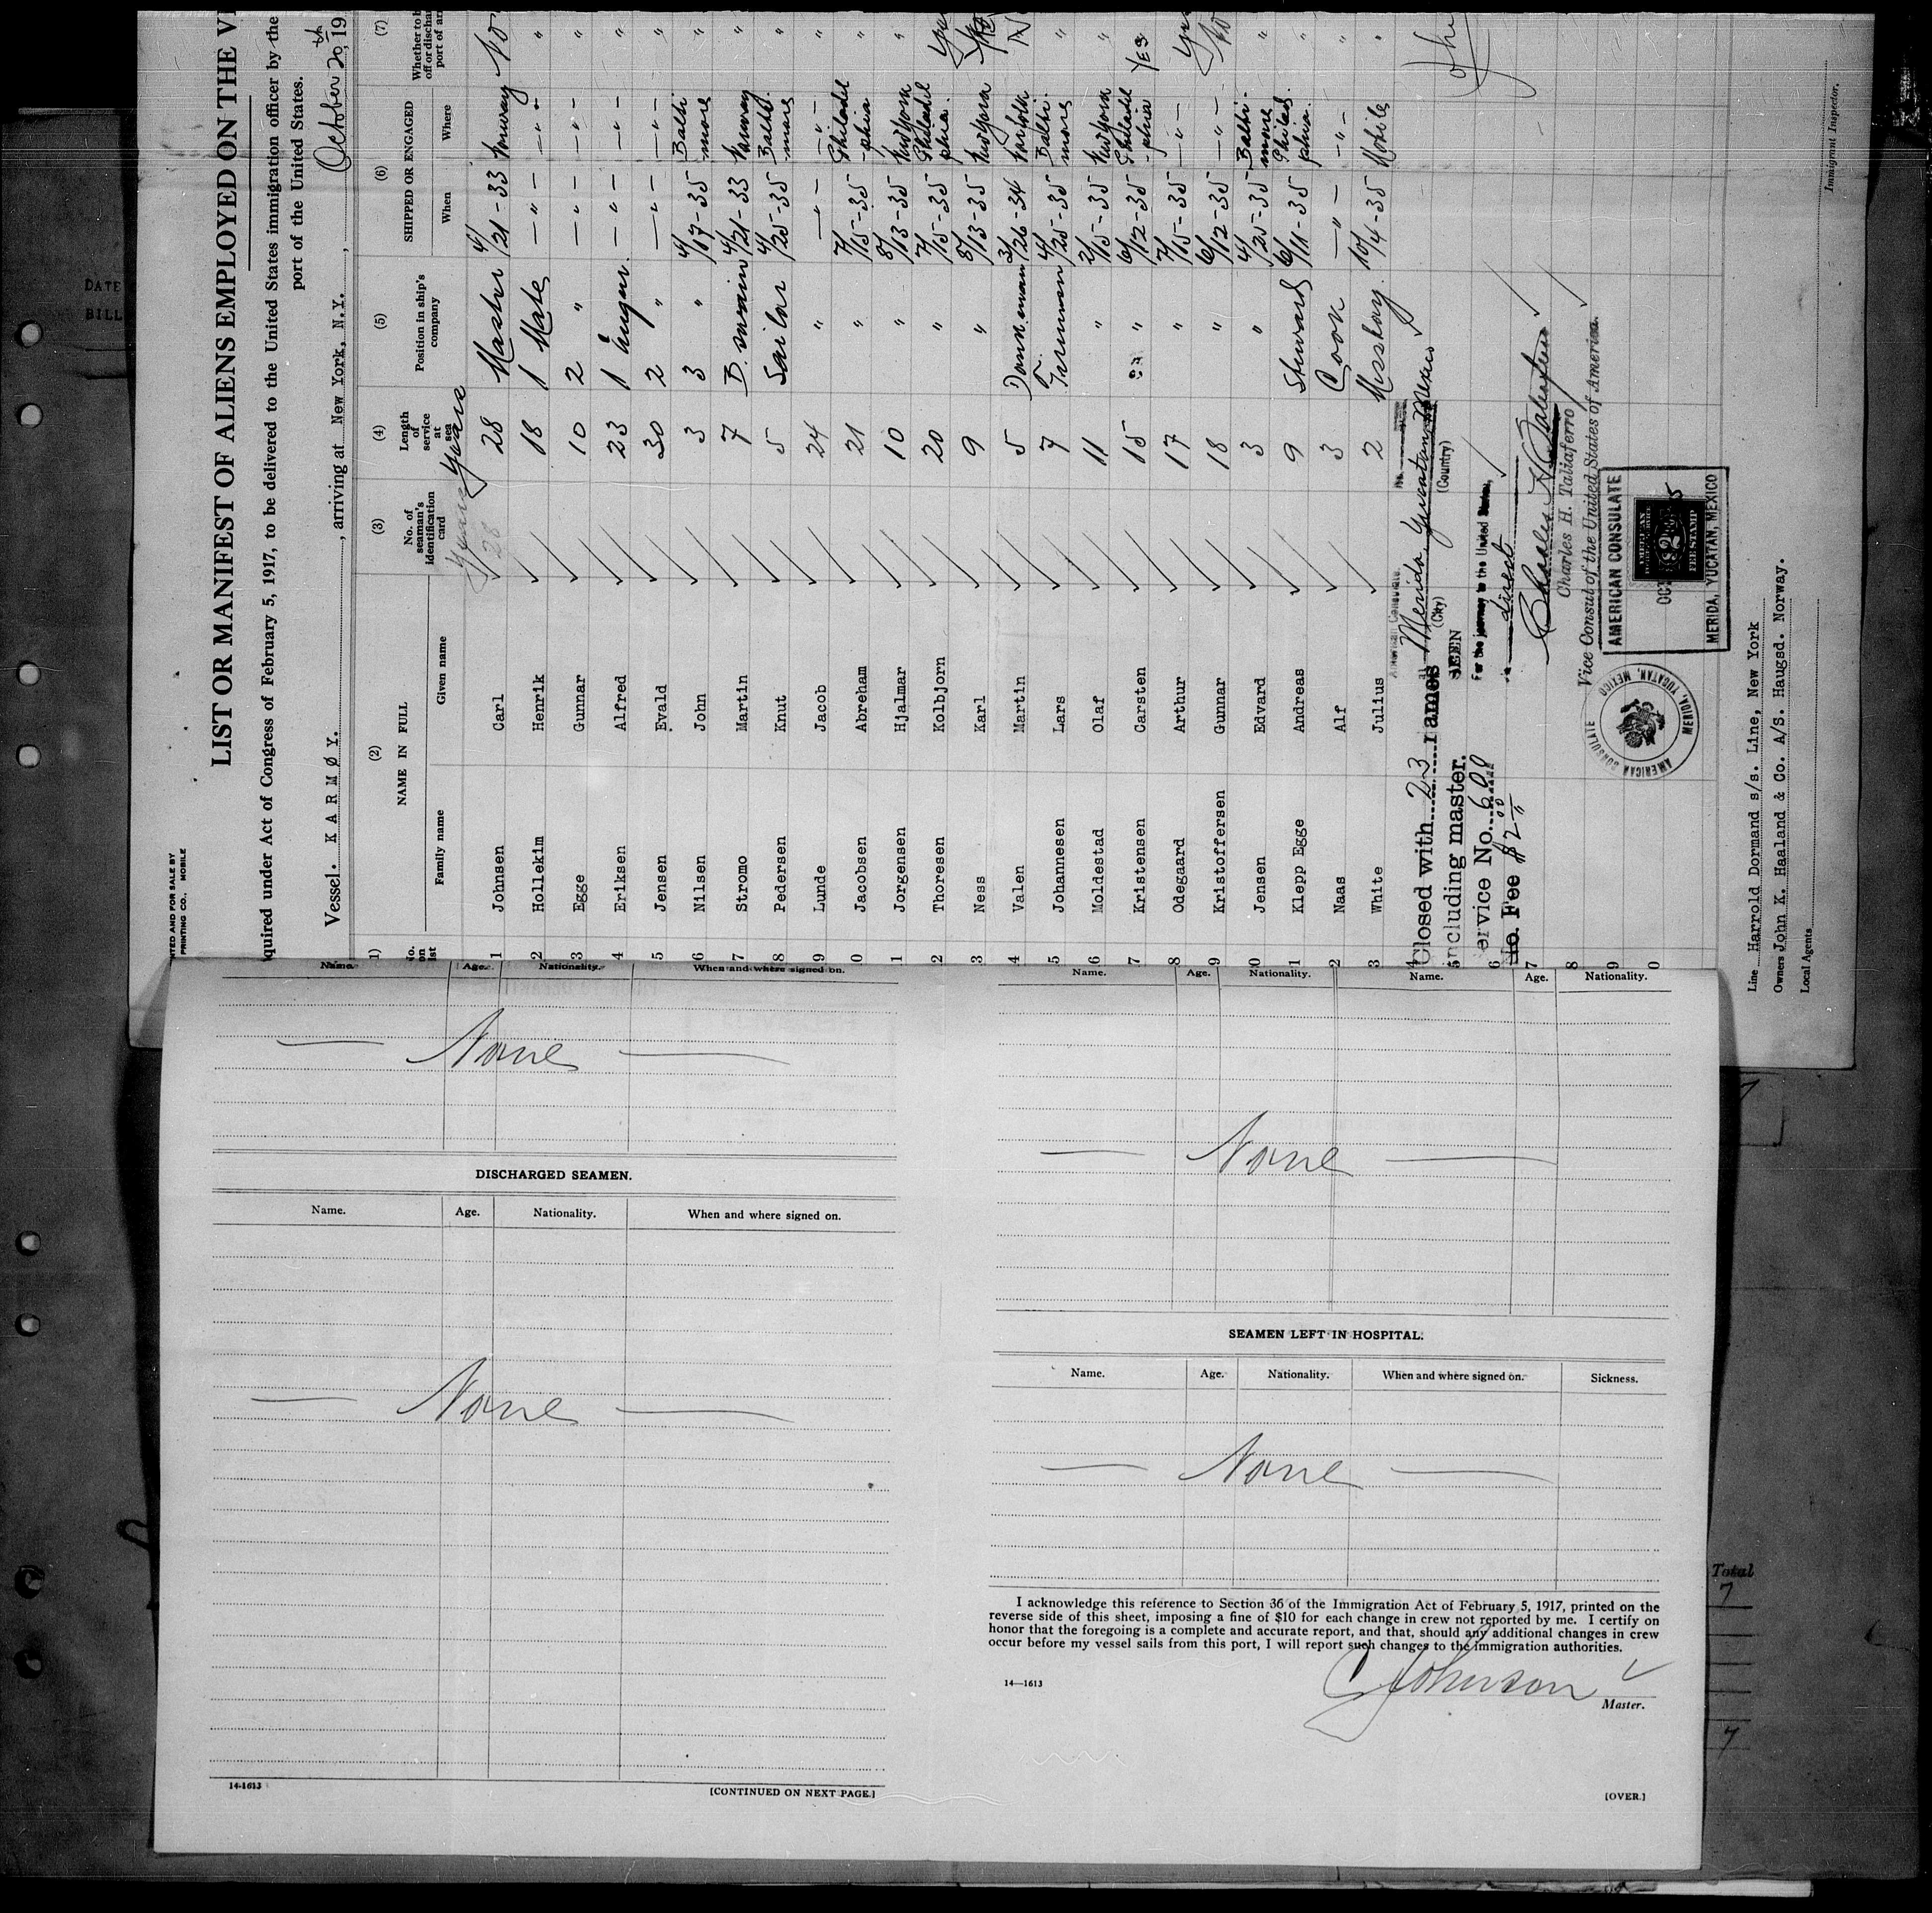 NTED AND FOR SALE BY
PRINTING CO., MOBILE
LIST OR MANIFEST OF ALIENS EMPLOYED ON THE
quired under Act of Congress of February 5, 1917, to be delivered to the United States immigration officer by the
port of the United States.
Vessel. KARMØY. , arriving at New York, N.Y. , October 20th, 19
(2) (3) (4) (5) (6) (7)
NAME IN FULL
Family name Given name
No. of seaman's identification card
Length of service at sea
Position in ship's company
SHIPPED OR ENGAGED
When Where
Years
1 Johnsen Carl 28 Master 4/21-33 Norway No
2 Hollekim Henrik 18 1 Mate -"- -"- "
3 Egge Gunnar 10 2 " -"- -"- "
4 Eriksen Alfred 23 1 -"- -"- "
5 Jensen Evald 30 2 " -"- -"- "
6 Nilsen John 3 3 " 4/17-35 Baltimore "
7 Stromo Martin 7 4/21-33 Norway "
8 Pedersen Knut 5 Sailor 4/25-35 Baltimore "
9 Lunde Jacob 24 " -"- -"- "
0 Jacobsen Abreham 21 " 7/15-35 Philadelphia "
1 Jorgensen Hjalmar 10 " 8/13-35 New York "
2 Thoresen Kolbjorn 20 " 7/15-35 Philadelphia.
3 Ness Karl 9 " 8/13-35 New York
4 Valen Martin 5 3/26-34 Norfolk
5 Johannesen Lars 7 4/25-35 Baltimore "
6 Moldestad Olaf 11 " 2/15-35 New York "
7 Kristensen Carsten 15 " 6/12-35 Philadelphia Yes
8 Odegaard Arthur 17 " 7/15-35 -"-
9 Kristoffersen Gunnar 18 " 6/12-35 -"- No
0 Jensen Edvard 3 " 4/25-35 Baltimore "
1 Klepp Egge Andreas 9 Steward 6/11-35 Philadelphia. "
2 Naas Alf 3 Cook -"- -"- "
3 White Julius 2 Messboy 10/14-35 Mobile "
Closed with 23 names
including master.
Service No. 600
No. Fee $2.00
American Consulate
Merida, Yucatan, Mexico
(City) (Country)
SEEN
For the journey to the United States,
direct
Charles H. Taliaferro
Charles H. Taliaferro
Vice Consul of the United States of America.
AMERICAN CONSULATE
MERIDA, YUCATAN, MEXICO
AMERICAN CONSULATE
MERIDA, YUCATAN, MEXICO
AMERICAN
FEE STAMP
Line Harrold Dormand s/s. Line, New York
Owners John K. Haaland & Co. A/S. Haugsd. Norway.
Local Agents
Immigrant Inspector.
Name. Age. Nationality. When and where signed on.
None
DISCHARGED SEAMEN.
Name. Age. Nationality. When and where signed on.
None
14-1613
[CONTINUED ON NEXT PAGE.]
Name. Age. Nationality. Name. Age. Nationality.
None
SEAMEN LEFT IN HOSPITAL.
Name. Age. Nationality. When and where signed on. Sickness.
None
I acknowledge this reference to Section 36 of the Immigration Act of February 5, 1917, printed on the
reverse side of this sheet, imposing a fine of $10 for each change in crew not reported by me. I certify on
honor that the foregoing is a complete and accurate report, and that, should any additional changes in crew
occur before my vessel sails from this port, I will report such changes to the immigration authorities.
14—1613
C Johnson
Master.
[OVER.]
DATE
BILL
Total
7
7